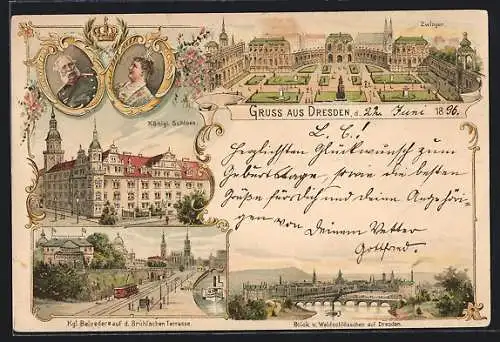 Zwinger.
GRUSS AUS DRESDEN, d. 22. Juni 1896.
Königl. Schloss
L. C.!
Herzlichsten Glückwunsch zum
Geburtstage, sowie die besten
Grüße für Dich und Deine Angehöri-
gen von Deinem Vetter
Gottfried.
Kgl. Belvedere auf d. Brühl'schen Terrasse.
Blick v. Waldschlösschen auf Dresden.